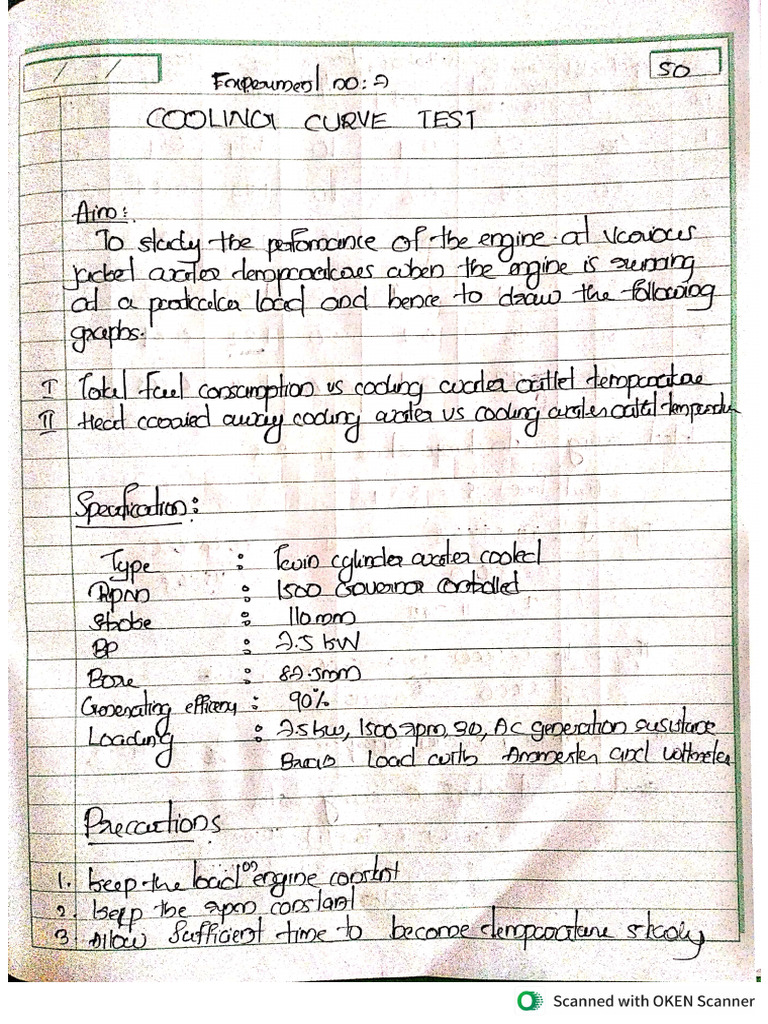 / /
Experiment no: 2
50
COOLING CURVE TEST
Aim:
To study the performance of the engine at various
jacket water temperatures when the engine is running
at a particular load and hence to draw the following
graphs.
I Total fuel consumption vs cooling water outlet temperature
II Heat carried away cooling water vs cooling water outlet temperature
Specification:
Type : Twin cylinder water cooled
Rpm : 1500 Governor controlled
Stroke : 110mm
BP : 7.5 kW
Bore : 87.5mm
Generating efficiency : 90%
Loading : 7.5kw, 1500 rpm, 3Φ, AC generation resistance
Load with Ammeter and voltmeter
Precautions
1. keep the load on engine constant
2. keep the rpm constant
3. Allow Sufficient time to become temperature steady
Scanned with OKEN Scanner